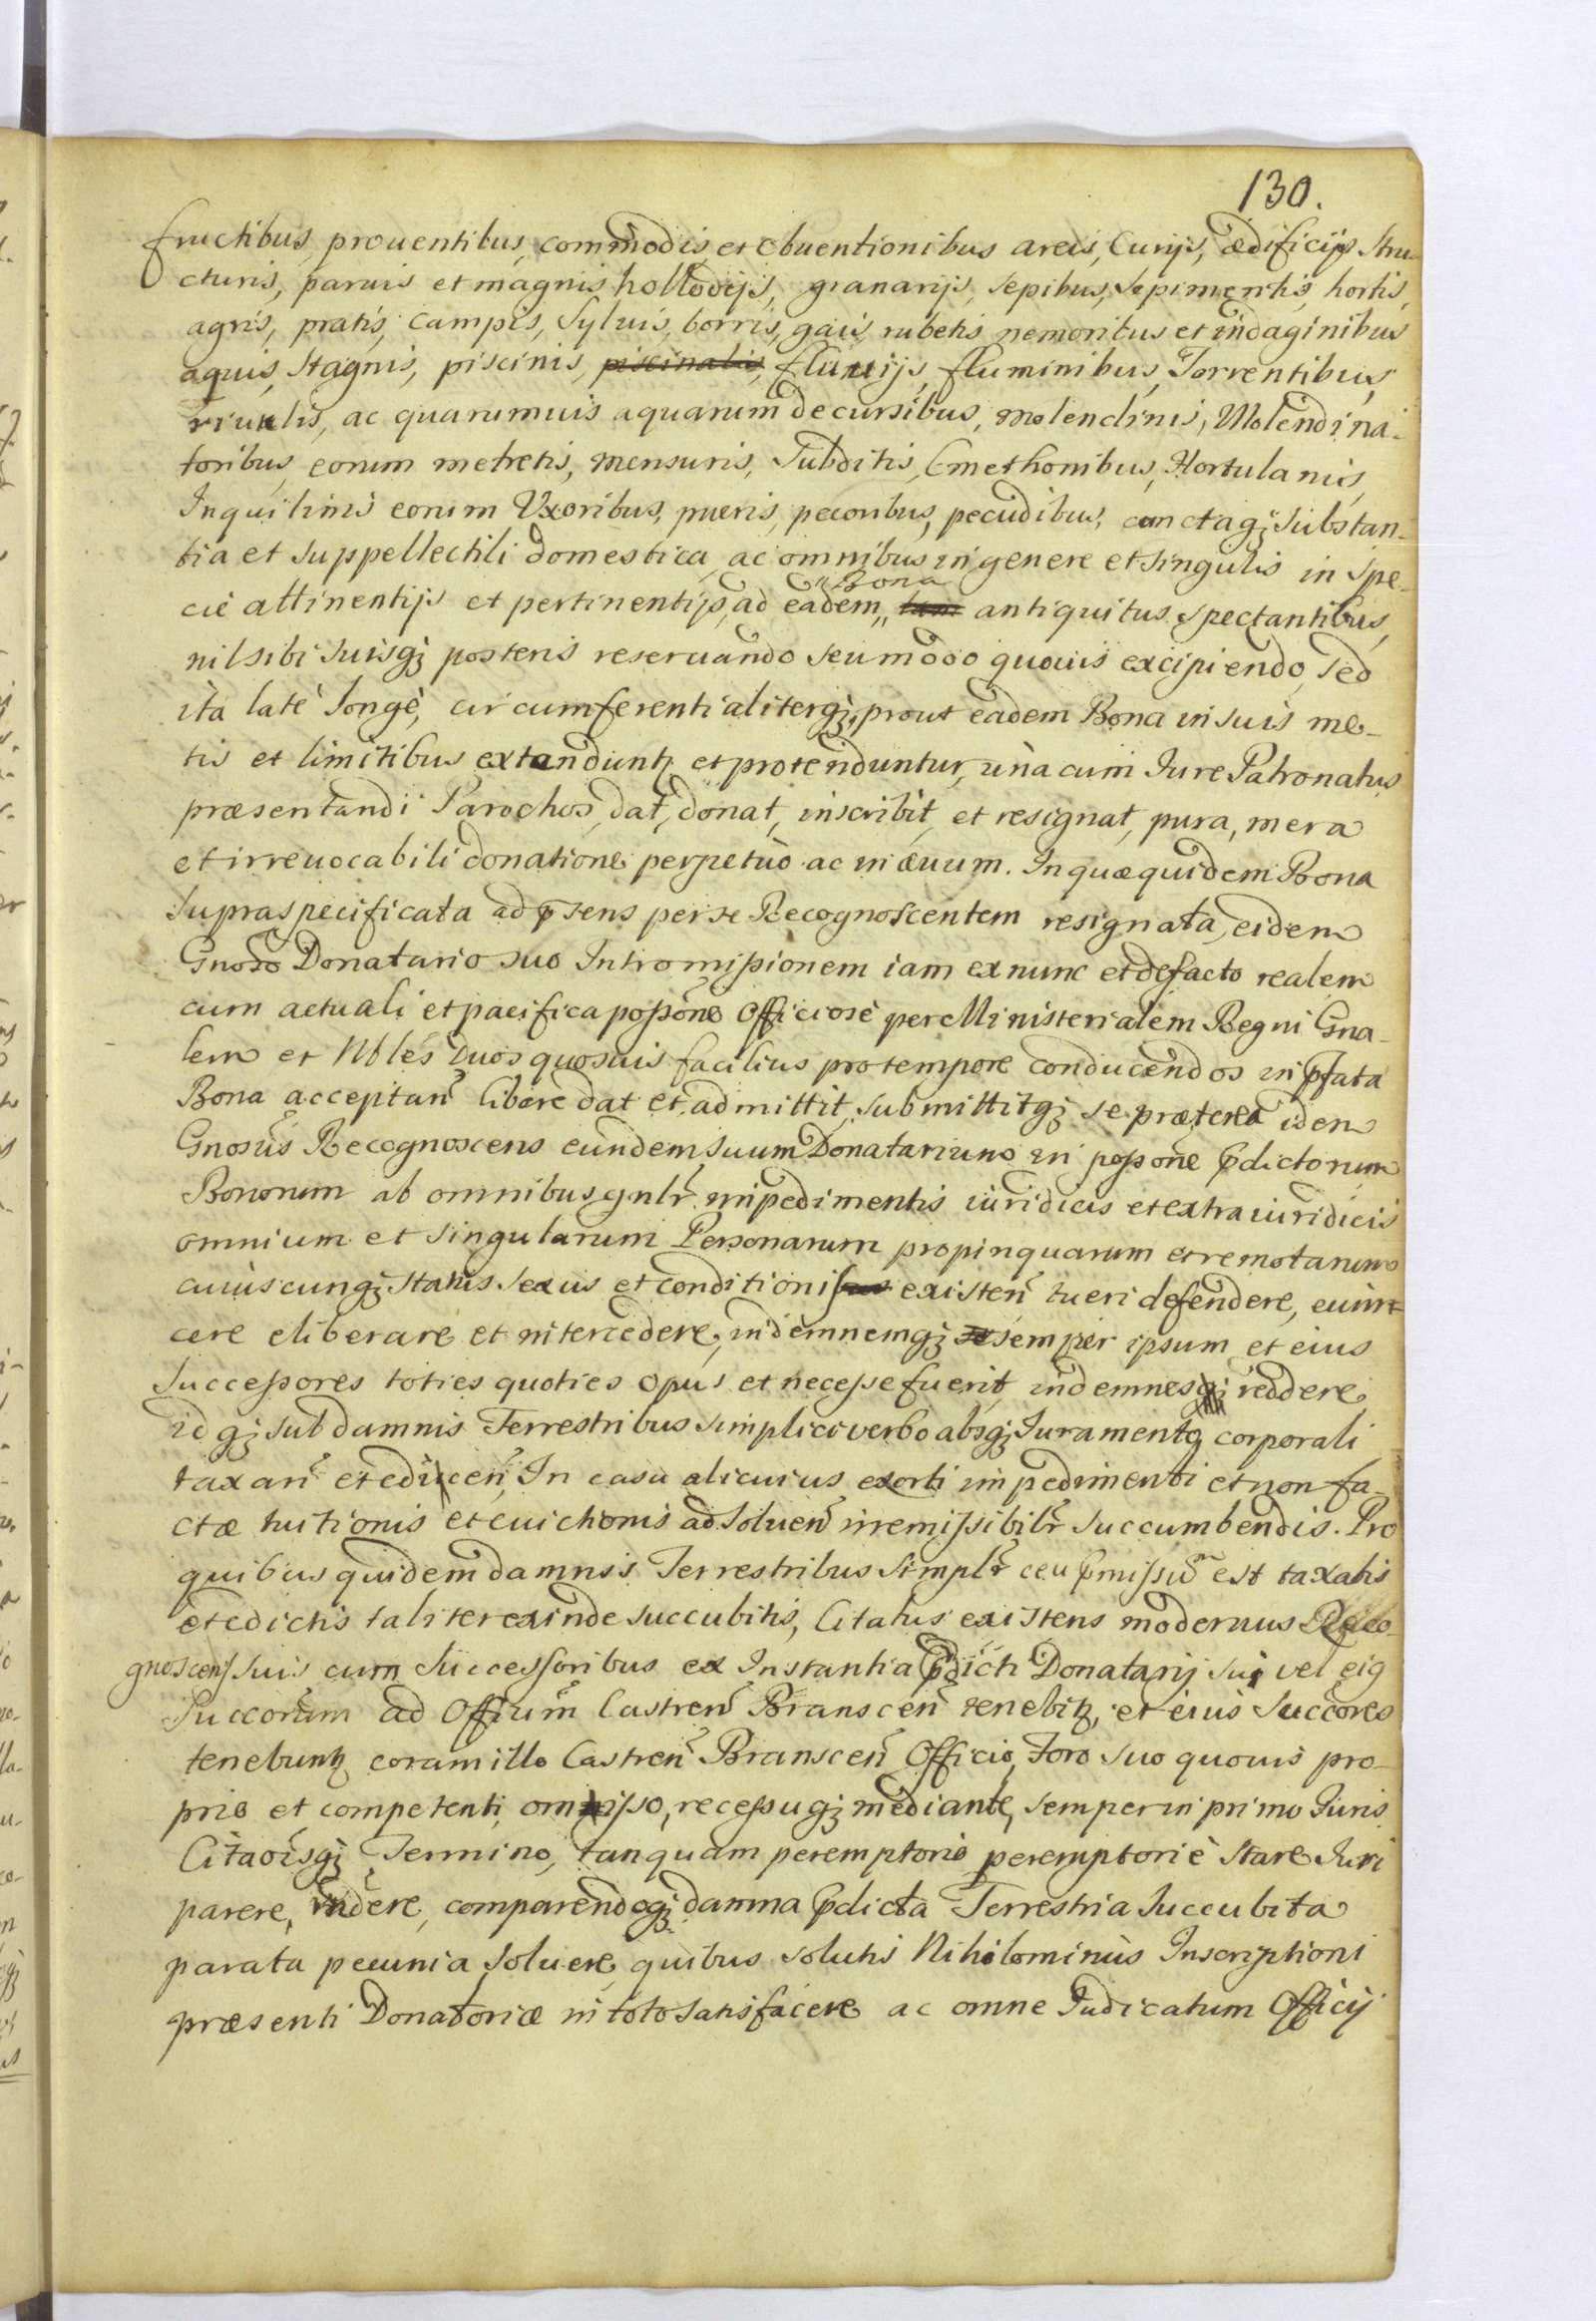 130.
fructibus, prouentibus, commodis, et obuentionibus areis, Curijs, ædificijs Stru-
cturis, paruis et magnis hollodijs, granarijs, sepibus, sepimentis, hortis,
agris, pratis, campis, Syluis, borris, gaiis, rubetis nemoribus et indaginibus
aquis, Stagnis, piscinis, piscinalis, fluuijs, fluminibus, Torrentibus,
riuulis, ac quarumuis aquarum decursibus, molendinis, Molendina-
toribus, eorum metretis, mensuris, Subditis, Cmethonibus, Hortulanis,
Inquilinis eorum Vxoribus, pueris, pecoribus, pecudibus, cunctaqꝫ substan-
tia et suppellectili domestica, ac omnibus in genere et singulis in spe-
cie attinentijs et pertinentijs, ad eadem „Bona antiquitus spectantibus,
nil sibi suisqꝫ posteris reseruando seu modo quouis excipiendo, sed
ita latè longè, circumferentialiterqꝫ, prout eadem Bona in suis me-
tis et limitibus extenduntꝛ et protenduntur, unà cum Iure Patronatus
præsentandi Parochos, dat, donat, inscribit, et resignat, pura, mera
et irreuocabili donatione perpetuò ac in æuum. In quæ quidem Bona
supraspecificata ad p̃sens per se Recognoscentem resignata, eidem
Gnoso Donatario suo Intromissionem iam ex nunc et defacto realem
cum actuali et pacifica possõne Officiosè per Ministerialem Regni Gna-
lem et Nobles duos quosuis facilius pro tempore conducendos in p̃fata
Bona acceptan̄ liberè dat et admittit, submittitqꝫ se præterea idem
Gnosus Recognoscens eundem suum Donatarium in possone p̃dictorum
Bonorum ab omnibus gnlr̄ impedimentis iuridicis et extraiuridicis
omnium et singularum Personarum propinquarum et remotarum
cuiuscunqꝫ status sexus et conditionis existen̄ tueri defendere, euin-
cere eliberare et intercedere, indemnemqꝫ semper ipsum et eius
Successores toties quoties opus et necesse fuerit, indemnesqꝫ reddere
idqꝫ sub damnis Terrestribus simplici verbo absqꝫ Iuramento corporali
taxan̄ et edicen̄, In casu alicuius exorti impedimenti et non fa-
ctæ tuitionis et euictionis ad soluen̄ irremissibilr̄ succumbendis. Pro
quibus quidem damnis Terrestribus simplr̄ ceu p̃missũ est taxatis
et edictis taliter exinde succubitis, Citatus existens modernus Reco-
gnoscens suis cum Successoribus ex Instantia p̃dicti Donatarij sui vel eiꝯ
Succorum ad Officium Castren̄ Branscen̄ tenebitꝛ, et eius Succores
tenebuntꝛ coram illo Castren̄ Branscen̄ Officio, Foro suo quouis pro-
prio et competenti omisso, recessuqꝫ mediante, semper in primo Iuris
Citaoisqꝫ Termino, tanquam peremptorio peremptoriè stare Iuri
parere, rñdere, comparendoqꝫ damna p̃dicta Terrestria succubita
parata pecunia soluere, quibus solutis Nihilominus Inscriptioni
præsenti Donatoriæ in toto satisfacere ac omne Iudicatum Officij